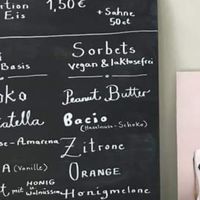 rtion 1,50€
Eis + Sahne
50ct
Sorbets
Basis vegan & laktosefrei
oko Peanut Butter
atella Bacio
(Haselnuss-Schoko)
se-Amarena Zitrone
A (Vanille) ORANGE
t mit HONIG Honigmelone
Walnüssen